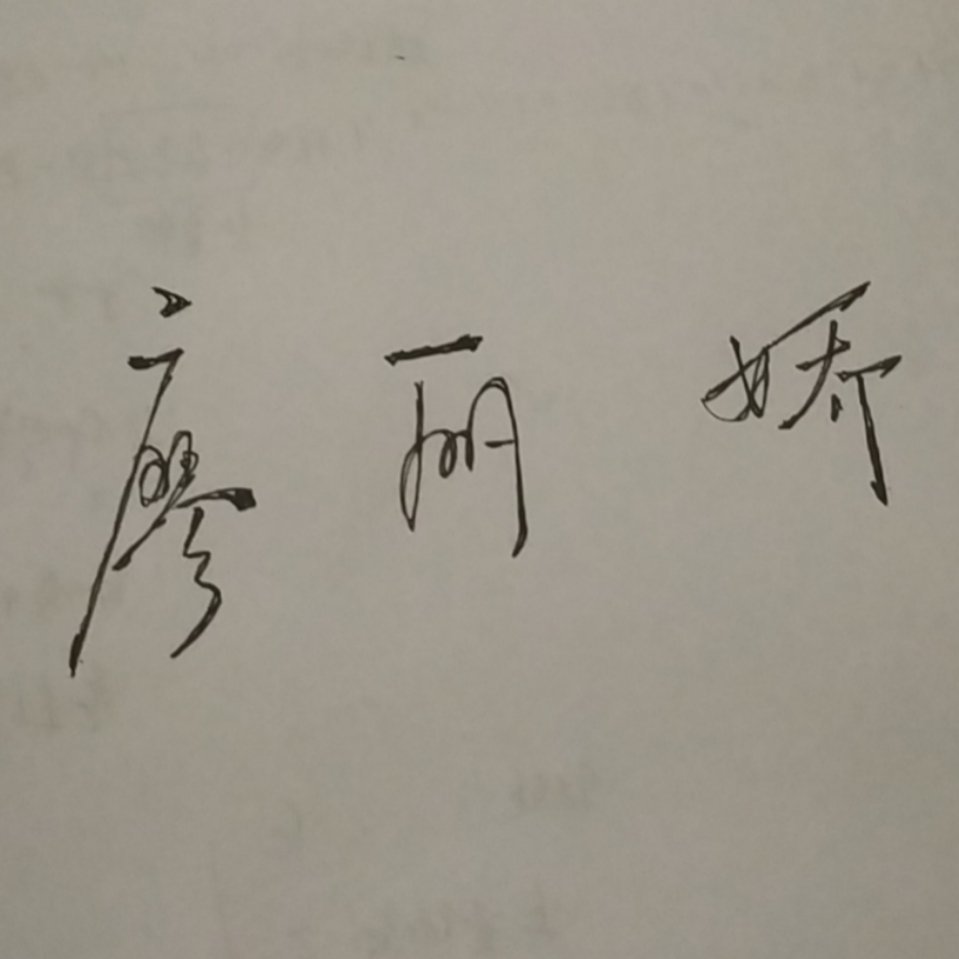 廖丽娇